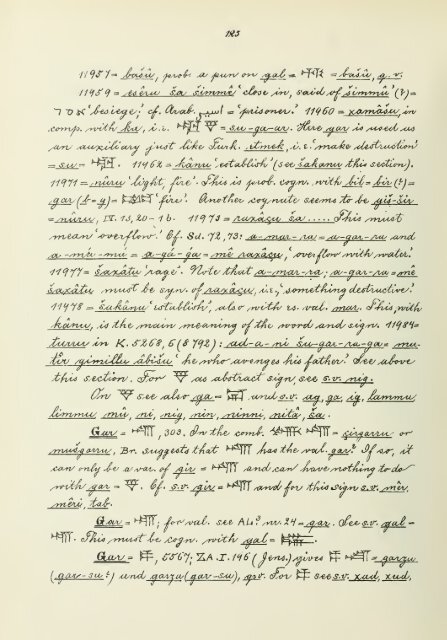 123
11951 = bašû, prob. a pun on gal = = bašû, q. v.
11959 = esêru ša šimmê 'close in, said of šimmû' (?) =
'besiege'; cf. Arab. 'prisoner.' 11960 = xamâšu, in
comp. with ku, i.e. = su-ga-ar. Here gar is used as
an auxiliary just like Turk. etmek, i.e. 'make destruction'
= su = . 11962 = kânu 'establish' (see šakanu this section).
11971 = nûru 'light, fire'. This is prob. cogn. with bil = bir (?) =
gar (b = g) = 'fire'. Another cognate seems to be giš-šir
= nûru, IV. 13, 20-1b. 11973 = raxâçu ša ..... This must
mean 'overflow'. Cf. Sd. 72, 73: a-mar-ra = a-gar-ra and
a-má-má = a-gá-ga = mê raxâçu, 'overflow with water'.
11977 = šaxâtu 'rage'. Note that a-mar-ra; a-gar-ra = mê
šaxâtu must be syn. of raxâçu, i.e., 'something destructive'.
11978 = šakânu 'establish', also with es. val. mar. This, with
kânu, is the main meaning of the word and sign. 11984 =
turru in K. 5268, 6 (8792): ad-a-ni šu-gar-ra-ga = mu-
têr gimillu âbišu 'he who avenges his father.' See above
this section. For as abstract sign see s.v. nig.
On see also ga = and s.v. ag, ga, ig, lammu
limmu, mû, ni, nig, nin, ninni, nitâ, ša.
Gar = , 303. In the comb. = çirgarru or
mušgarru, Br. suggests that has the val. gar? If so, it
can only be a var. of gir = and can have nothing to do
with gar = . Cf. s.v. gir = and for this sign s.v. mêr,
mêri, tab.
Gar = ; for val. see AL.³ nr. 24 = gar. See s.v. gal =
. This must be cogn. with gal = .
Gar = , 5567; Z.A. I. 196 (Jens.) gives = garza
(gar-su?) and garza (gar-su), q.v. For see s.v. xud, xud.